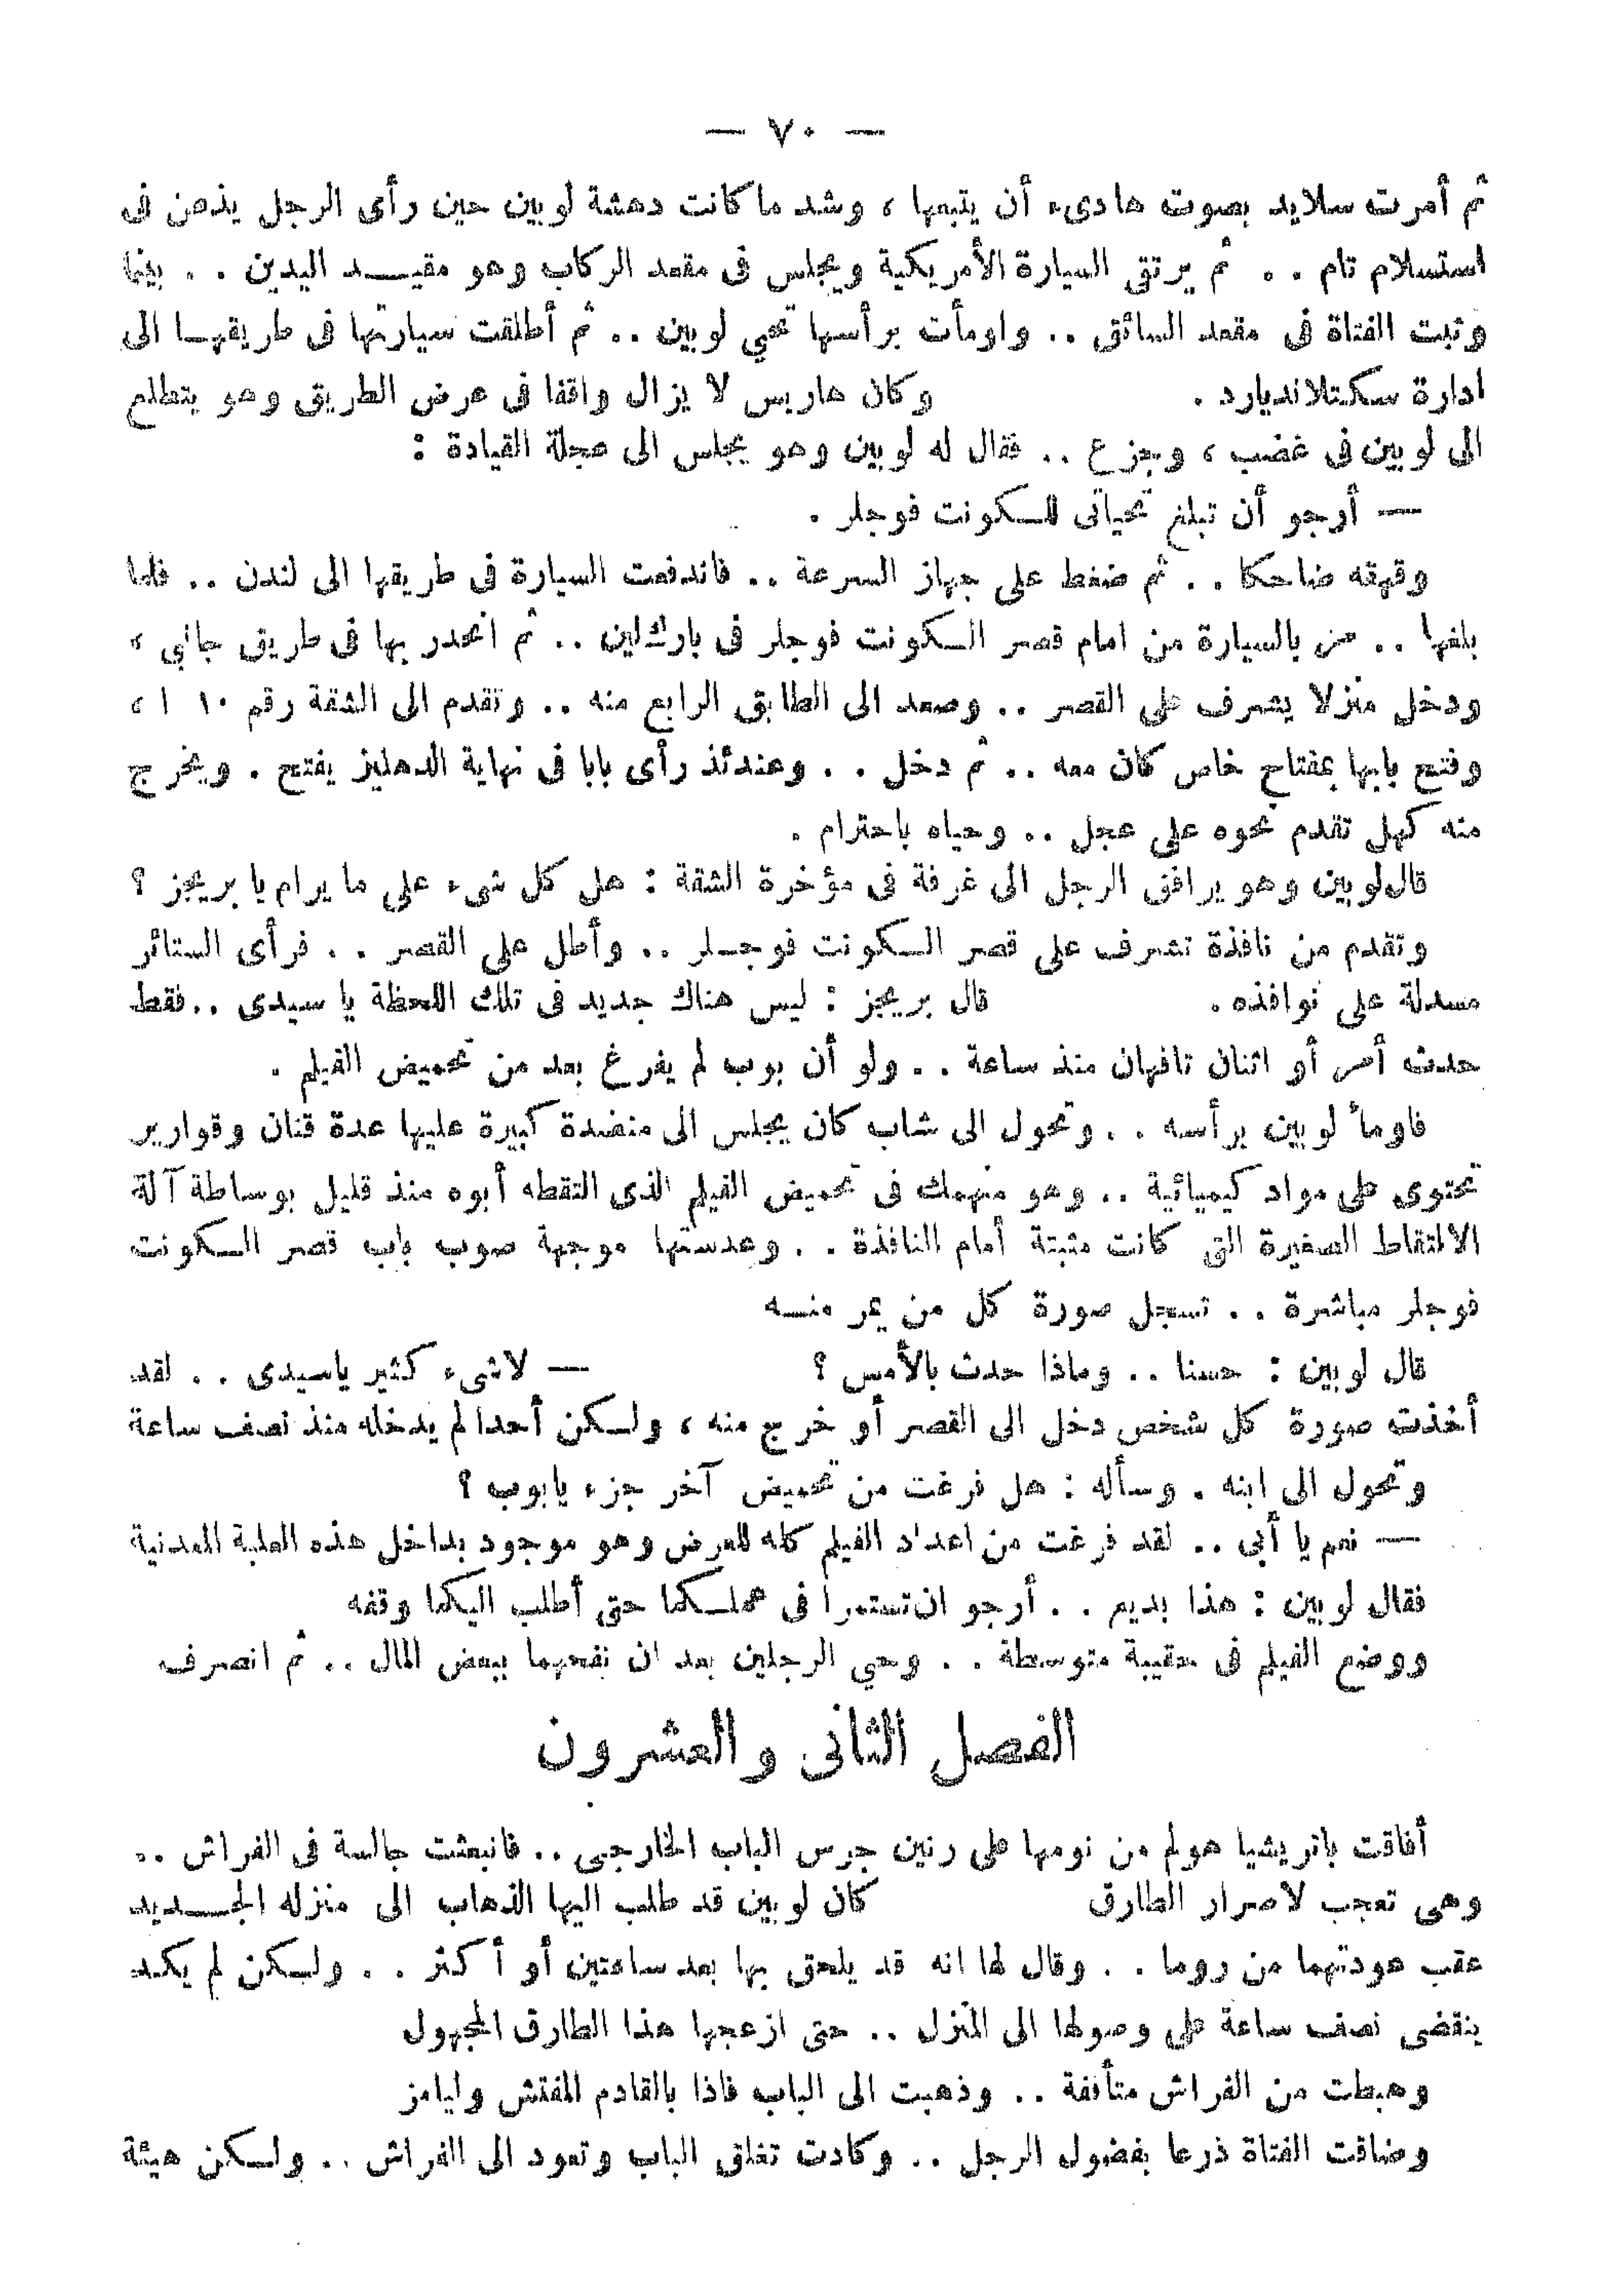 — ٧٠ —
ثم أمرت سلايد بصوت هادىء أن يتبعها ، وشد ما كانت دهشة لوبين حين رأى الرجل يذعن فى
استسلام تام . . ثم يرتقى السيارة الأمريكية ويجلس فى مقعد الركاب وهو مقيد اليدين . . بينما
وثبت الفتاة فى مقعد السائق .. واومأت برأسها تحي لوبين .. ثم أطلقت سيارتها فى طريقها الى
ادارة سكتلانديارد . وكان هاريس لا يزال واقفا فى عرض الطريق وهو يتطلع
الى لوبين فى غضب ، وجزع .. فقال له لوبين وهو يجلس الى عجلة القيادة :
— أرجو أن تبلغ تحياتى للكونت فوجلر .
وقهقه ضاحكا . . ثم ضغط على جهاز السرعة .. فاندفعت السيارة فى طريقها الى لندن .. فلما
بلغها .. مر بالسيارة من امام قصر الكونت فوجلر فى بارك لين .. ثم انحدر بها فى طريق جانبي ،
ودخل منزلا يشرف على القصر .. وصعد الى الطابق الرابع منه .. وتقدم الى الشقة رقم ١٠ ا ،
وفتح بابها بمفتاح خاص كان معه .. ثم دخل . . وعندئذ رأى بابا فى نهاية الدهليز يفتح . ويخرج
منه كهل تقدم نحوه على عجل .. وحياه باحترام .
قال لوبين وهو يرافق الرجل الى غرفة فى مؤخرة الشقة : هل كل شىء على ما يرام يا بريجز ؟
وتقدم من نافذة تشرف على قصر الكونت فوجلر .. وأطل على القصر . . فرأى الستائر
مسدلة على نوافذه . قال بريجز : ليس هناك جديد فى تلك اللحظة يا سيدى .. فقط
حدث أمر أو اثنان تافهان منذ ساعة . . ولو أن بوب لم يفرغ بعد من تحميض الفيلم .
فاومأ لوبين برأسه . . وتحول الى شاب كان يجلس الى منضدة كبيرة عليها عدة قنان وقوارير
تحتوى على مواد كيميائية .. وهو منهمك فى تحميض الفيلم الذى التقطه أبوه منذ قليل بوساطة آلة
الالتقاط الصغيرة التى كانت مثبتة أمام النافذة . . وعدستها موجهة صوب باب قصر الكونت
فوجلر مباشرة . . تسجل صورة كل من يمر منه
قال لوبين : حسنا .. وماذا حدث بالأمس ؟ — لاشىء كثير ياسيدى . . لقد
أخذت صورة كل شخص دخل الى القصر أو خرج منه ، ولكن أحدا لم يدخله منذ نصف ساعة
وتحول الى ابنه . وسأله : هل فرغت من تحميض آخر جزء يابوب ؟
— نعم يا أبى .. لقد فرغت من اعداد الفيلم كله للعرض وهو موجود بداخل هذه العلبة المعدنية
فقال لوبين : هذا بديع . . أرجو ان تستمرا فى عملكما حتى أطلب اليكما وقفه
ووضع الفيلم فى حقيبة متوسطة . . وحي الرجلين بعد ان نفحهما ببعض المال .. ثم انصرف
الفصل الثانى والعشرون
أفاقت باتريشيا هولم من نومها على رنين جرس الباب الخارجى .. فانبعثت جالسة فى الفراش ..
وهى تعجب لاصرار الطارق كان لوبين قد طلب اليها الذهاب الى منزله الجديد
عقب عودتهما من روما . . وقال لها انه قد يلحق بها بعد ساعتين أو أكثر . . ولكن لم يكد
ينقضى نصف ساعة على وصولها الى المنزل .. حتى ازعجها هذا الطارق المجهول
وهبطت من الفراش متأففة .. وذهبت الى الباب فاذا بالقادم المفتش وليامز
وضاقت الفتاة ذرعا بفضول الرجل .. وكادت تغلق الباب وتعود الى الفراش .. ولكن هيئة